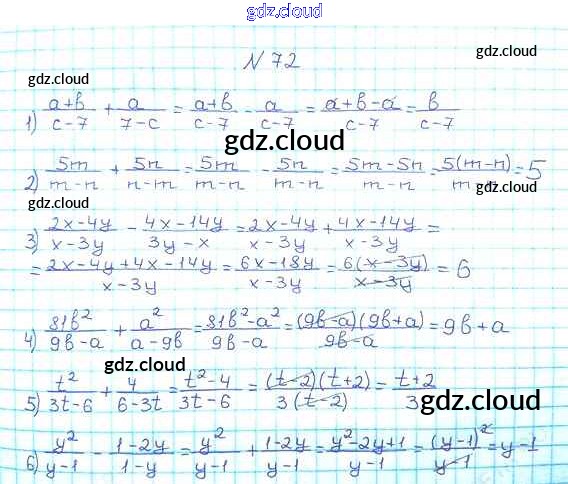 gdz.cloud
gdz.cloud
N 72
gdz.cloud
gdz.cloud
1) (a+b)/(c-7) + a/(7-c) = (a+b)/(c-7) - a/(c-7) = (a+b-a)/(c-7) = b/(c-7)
gdz.cloud
2) 5m/(m-n) + 5n/(n-m) = 5m/(m-n) - 5n/(m-n) = (5m-5n)/(m-n) = 5(m-n)/m = 5
gdz.cloud
3) (2x-4y)/(x-3y) - (4x-14y)/(3y-x) = (2x-4y)/(x-3y) + (4x-14y)/(x-3y) =
= (2x-4y+4x-14y)/(x-3y) = (6x-18y)/(x-3y) = 6(x-3y)/(x-3y) = 6
4) 81b²/(9b-a) + a²/(a-9b) = (81b²-a²)/(9b-a) = (9b-a)(9b+a)/(9b-a) = 9b+a
gdz.cloud
5) t²/(3t-6) + 4/(6-3t) = (t²-4)/(3t-6) = (t-2)(t+2)/3(t-2) = (t+2)/3
gdz.cloud
6) y²/(y-1) - (1-2y)/(1-y) = y²/(y-1) + (1-2y)/(y-1) = (y²-2y+1)/(y-1) = (y-1)²/(y-1) = y-1
gdz.cloud